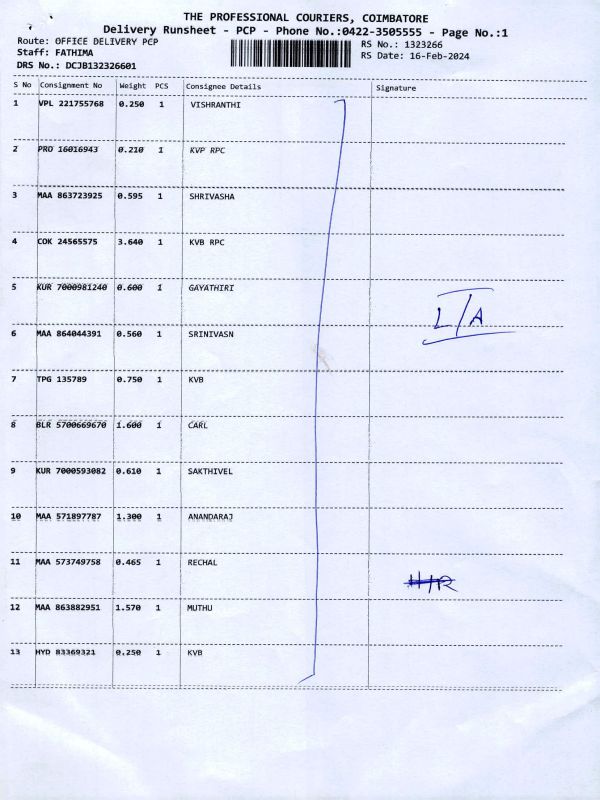 THE PROFESSIONAL COURIERS, COIMBATORE
Delivery Runsheet - PCP - Phone No.:0422-3505555 - Page No.:1
Route: OFFICE DELIVERY PCP
Staff: FATHIMA
DRS No.: DCJB132326601
RS No.: 1323266
RS Date: 16-Feb-2024
S No Consignment No Weight PCS Consignee Details Signature
1 VPL 221755768 0.250 1 VISHRANTHI
2 PRO 16016943 0.210 1 KVP RPC
3 MAA 863723925 0.595 1 SHRIVASHA
4 COK 24565575 3.640 1 KVB RPC
5 KUR 7000981240 0.600 1 GAYATHIRI
L/A
6 MAA 864044391 0.560 1 SRINIVASN
7 TPG 135789 0.750 1 KVB
8 BLR 5700669670 1.600 1 CARL
9 KUR 7000593082 0.610 1 SAKTHIVEL
10 MAA 571897787 1.300 1 ANANDARAJ
11 MAA 573749758 0.465 1 RECHAL
12 MAA 863882951 1.570 1 MUTHU
13 HYD 83369321 0.250 1 KVB